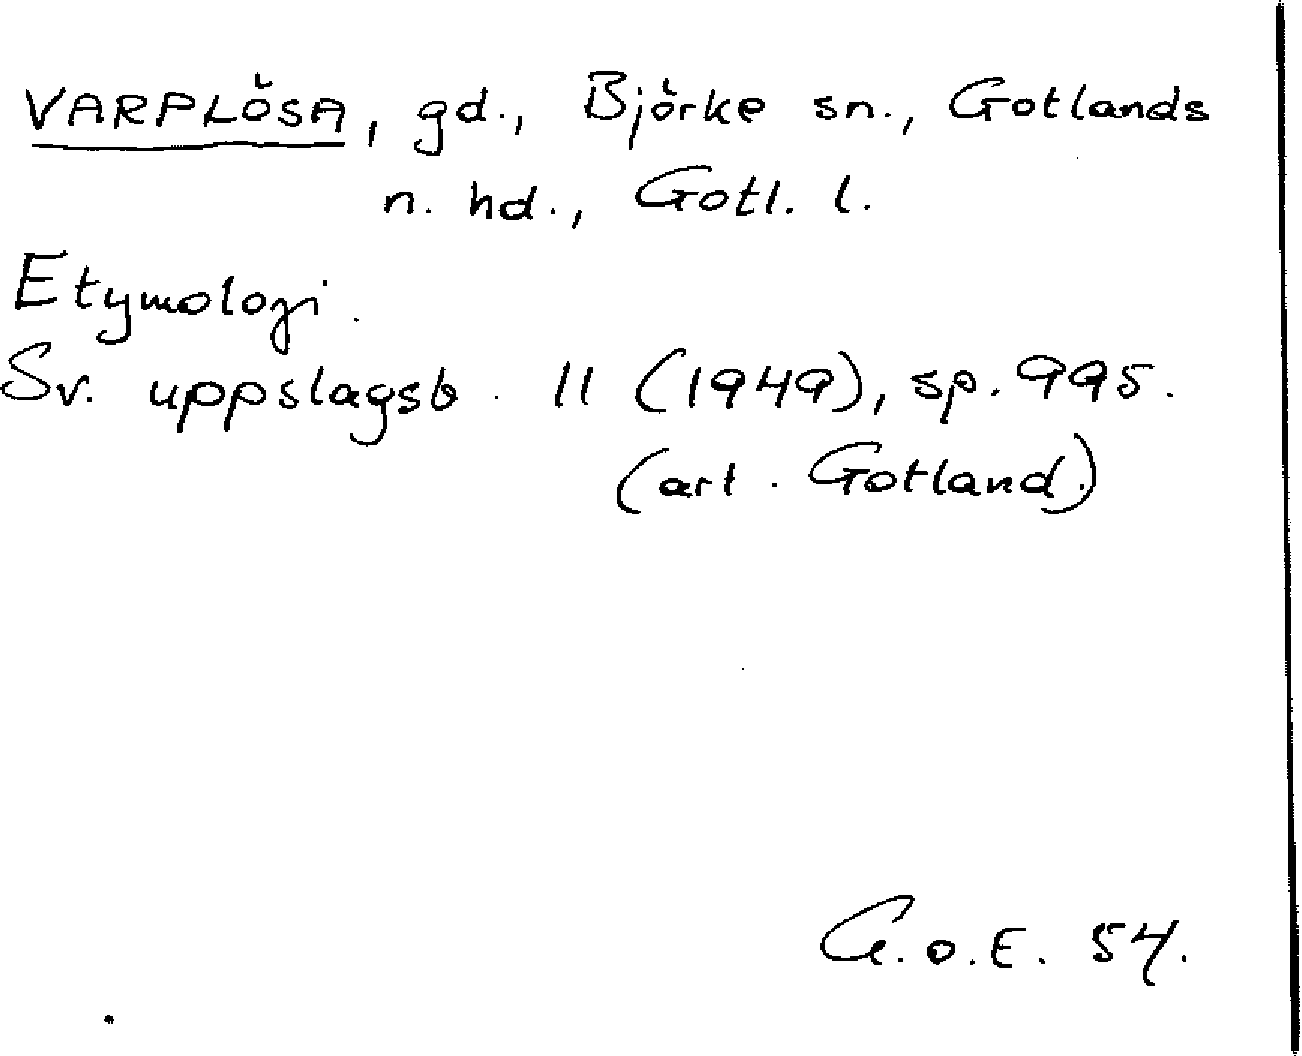 VARPLÖSA, gd., Björke sn., Gotlands
n. hd., Gotl. l.
Etymologi.
Sv. uppslagsb. 11 (1949), sp. 995.
(art. Gotland.)
G.o.E. 54.